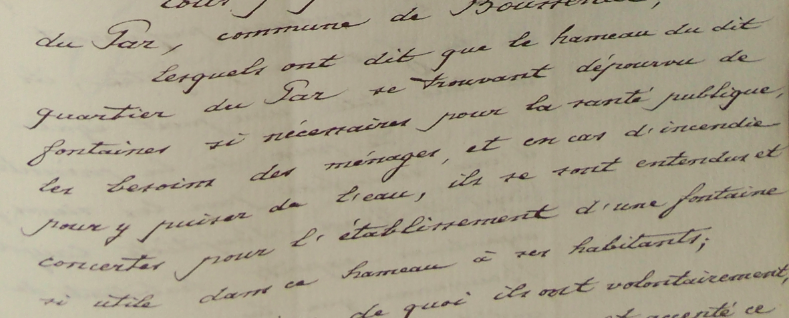 du Par, commune de
Lesquels ont dit que le hameau du dit
quartier du Par se trouvant dépourvu de
fontaines si nécessaires pour la santé publique,
les besoins des ménages, et en cas d'incendie
pour y puiser de l'eau, ils se sont entendus et
concertés pour l'établissement d'une fontaine
si utile dans ce hameau à ses habitants;
de quoi ils ont volontairement,
ce